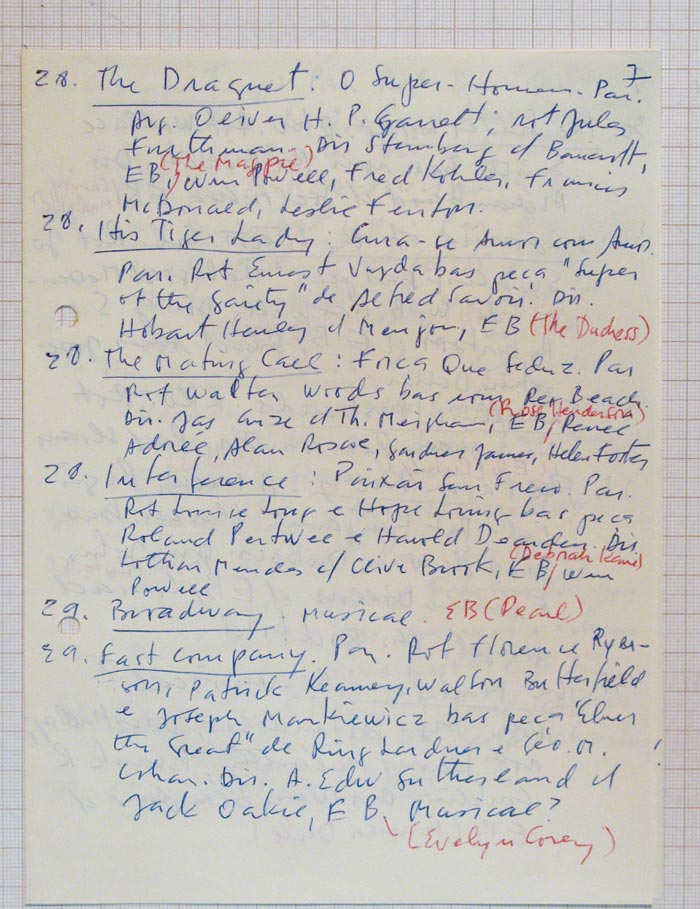 7
28. The Dragnet: O Super-Homem. Par.
Arg. Oliver H. P. Garrett; rot Jules
Furthman. Dir Sternberg c/ Bancroft,
(The Magpie)
EB, Wm Powell, Fred Kohler, Francis
McDonald, Leslie Fenton.
28. His Tiger Lady: Cura-se Amor com Amor.
Par. Rot Ernest Vajda bas peça "Super
of the Gaiety" de Alfred Savoir. Dir.
Hobart Henley c/ Menjou, EB (The Duchess)
28. The Mating Call: Força Que Seduz. Par
Rot Walter Woods bas rom Rex Beach.
(Rose Henderson)
Dir. Jas Cruze c/ Th. Meighan, EB, Renee
Adoree, Alan Roscoe, Gardner James, Helen Foster
28. Interference: Paixão Sem Freio. Par.
Rot Louise Long e Hope Loring bas peça
Roland Pertwee e Harold Dearden. Dir.
(Deborah Kane)
Lothar Mendes c/ Clive Brook, EB, Wm
Powell
29. Broadway. Musical. EB (Pearl)
29. Fast Company. Par. Rot Florence Ryer-
son, Patrick Kearney, Walton Butterfield
e Joseph Mankiewicz bas peça "Elmer
the Great" de Ring Lardner e Geo. M.
Cohan. Dir. A. Edw Sutherland c/
Jack Oakie, EB, Musical?
(Evelyn Corey)